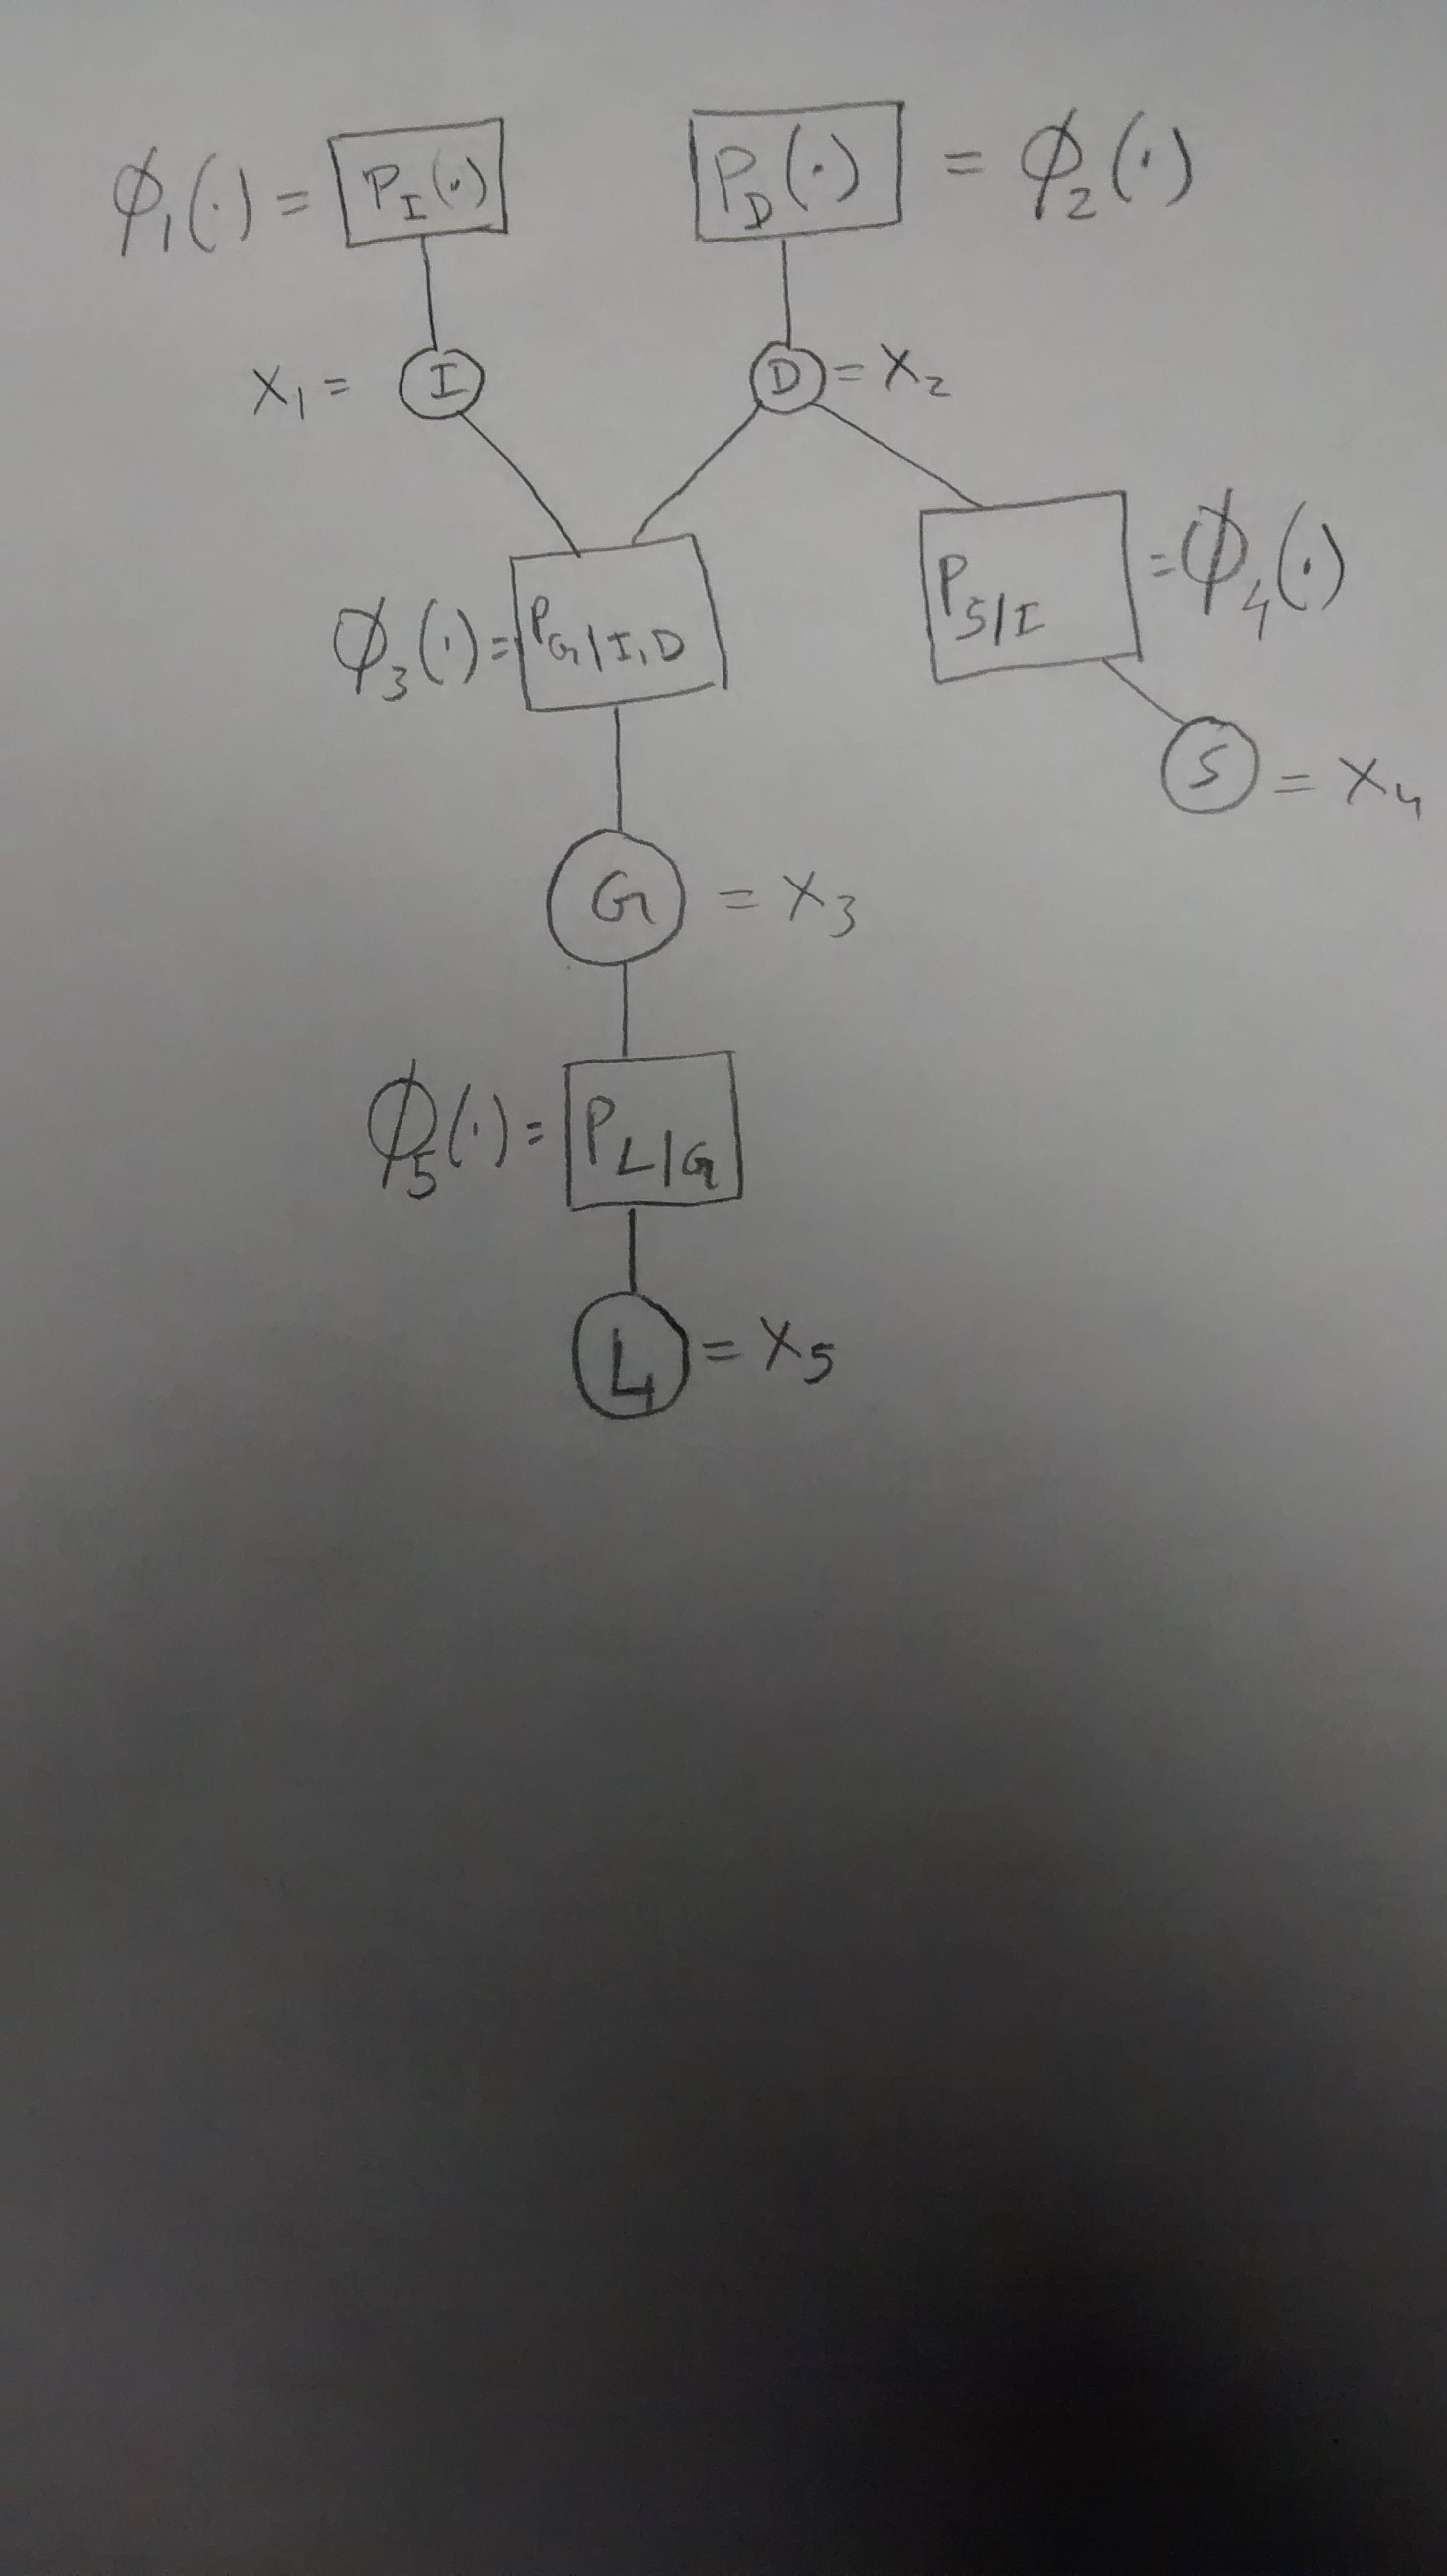 ϕ₁(·) = P_I(·)
P_D(·) = ϕ₂(·)
X₁ = I
D = X₂
ϕ₃(·) = P_G|I,D
P_S|I = ϕ₄(·)
S = X₄
G = X₃
ϕ₅(·) = P_L|G
L = X₅